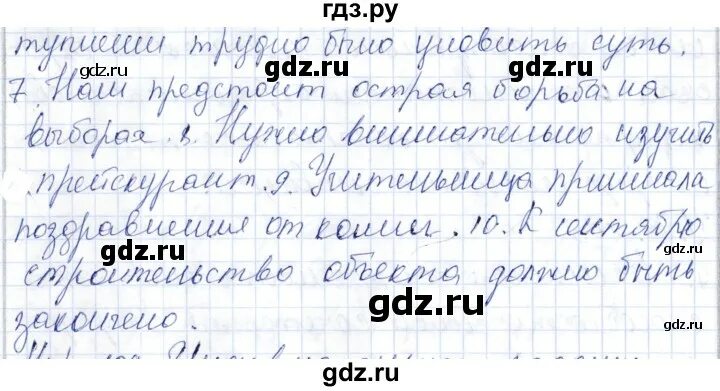 гдз.ру
туплении трудно было уловить суть.
gdz.ru gdz.ru
7. Нам предстоит острая борьба на
выборах. 8. Нужно внимательно изучить
gdz.ru gdz.ru
прейскурант. 9. Учительница принимала
поздравления от коллег. 10. К сентябрю
gdz.ru gdz.ru
строительство объекта должно быть
gdz.ru
закончено.
gdz.ru gdz.ru